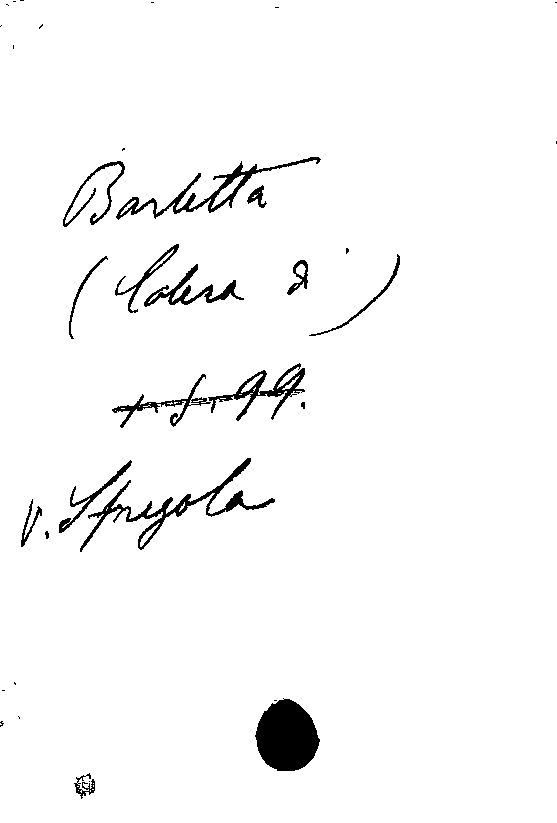 Barletta
( Colera di )
V. Sfregola